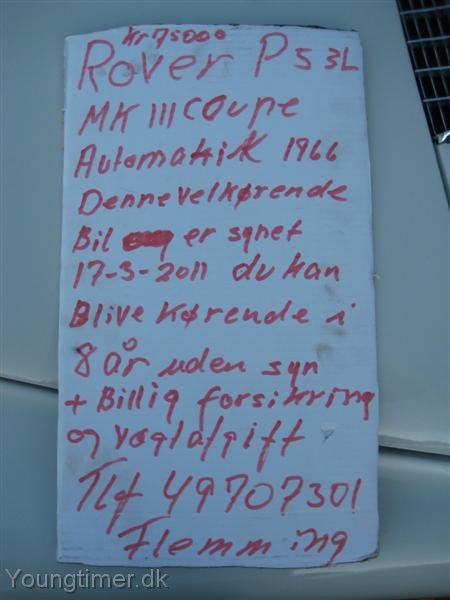 Kr 75000
Rover P5 3L
MK III Coupe
Automatik 1966
Denne velkørende
Bil er synet
17-3-2011 du kan
Blive kørende i
8 år uden syn
+ Billig forsikring
og Vægtafgift
Tlf 49707301
Flemming
Youngtimer.dk